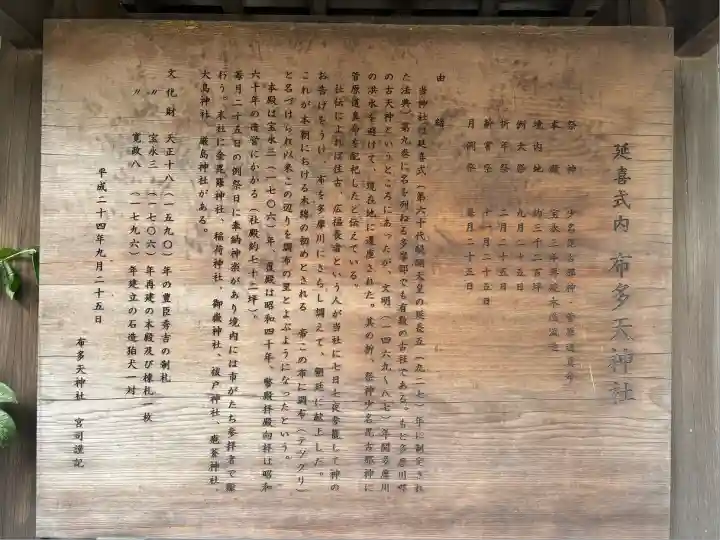 延喜式内 布多天神社
祭神 少名毘古那神・菅原道真命
本殿 宝永三年再建木造
境内地 約三千二百坪
例大祭 九月二十五日
祈年祭 二月二十五日
新嘗祭 十一月二十五日
月例祭 毎月二十五日
由緒
当神社は延喜式（第六十代醍醐天皇の延長五（九二七）年に制定され
た法典）第九巻に名を列ねる多摩郡でも有数の古社である。もと多摩川畔
の古天神というところにあったが、文明（一四六九～八七）年間多摩川
の洪水を避けて、現在地に遷座された。其の折、祭神少名毘古那神に
菅原道真命を配祀したと伝えている。
社伝によれば往古、広福長者という人が当社に七日七夜参籠して神の
お告げをうけ、布を多摩川にさらし調えて、朝廷に献上した。
これが本朝における木綿の初めとされ 帝この布に調布（テヅクリ）
と名づけられ以来この辺りを調布の里とよぶようになったという。
本殿は宝永三（一七〇六）年、覆殿は昭和四十年、幣殿拝殿向拝は昭和
六十年の造営にかかる（社殿約七十二坪）。
毎月二十五日の例祭日に奉納神楽があり境内には市がたち参拝者で賑
わう。末社に金毘羅神社、稲荷神社、御嶽神社、祓戸神社、疱瘡神社、
大鳥神社、厳島神社がある。
文化財 天正十八（一五九〇）年の豊臣秀吉の制札
〃 宝永三（一七〇六）年再建の本殿及び棟札一枚
〃 寛政八（一七九六）年建立の石造狛犬一対
平成二十四年九月二十五日
布多天神社 宮司謹記